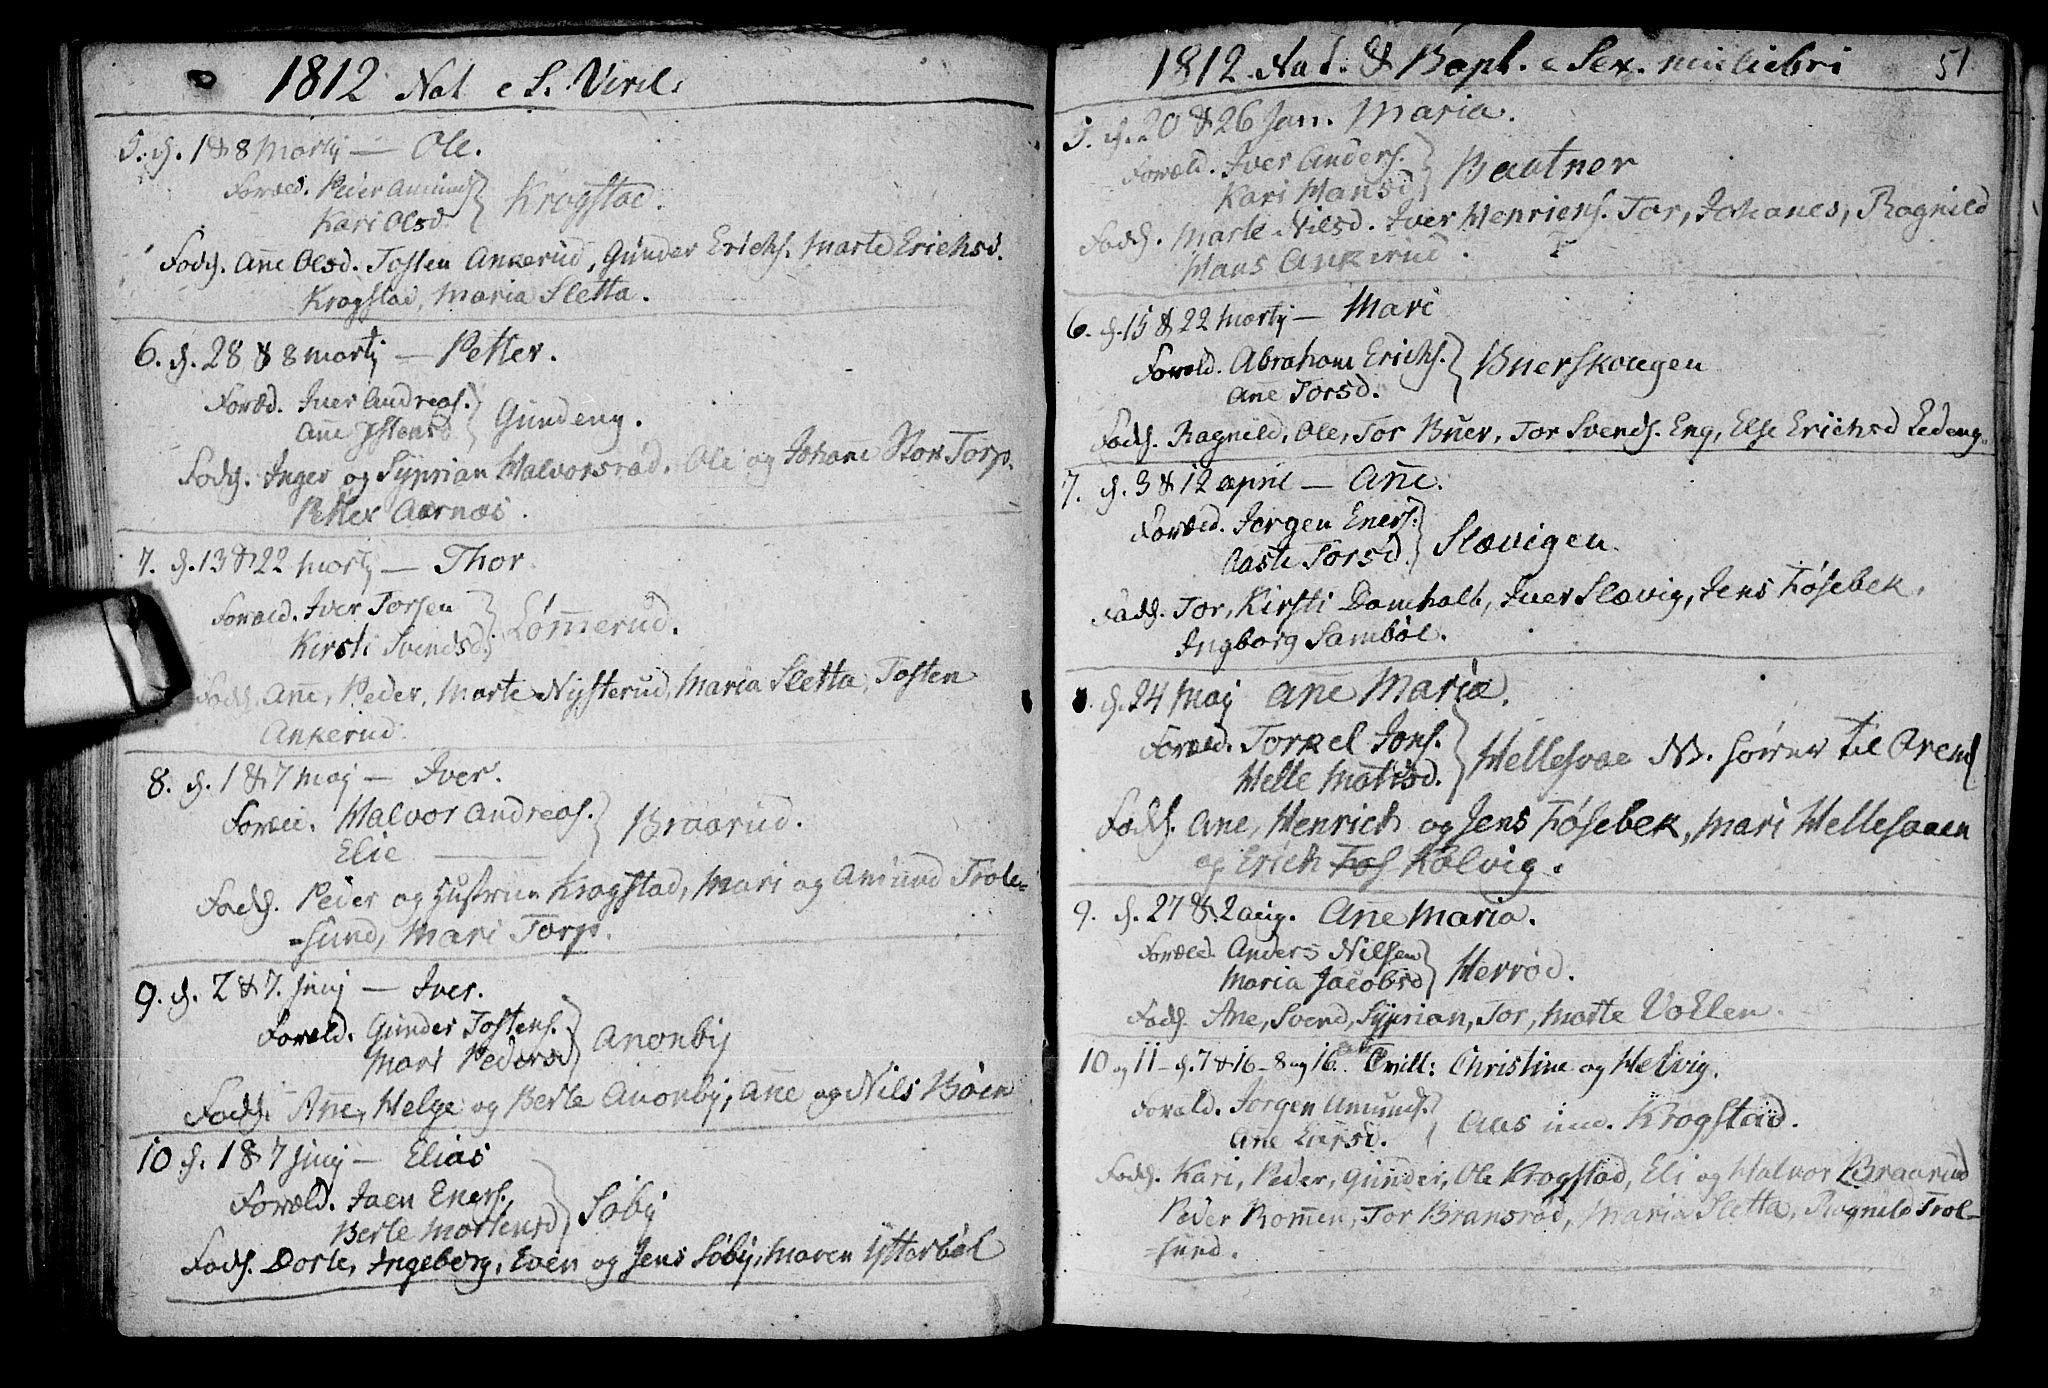 1812 Nat e S. Viril:
5. d. 1 & 8 Martij — Ole.
Foræld. Peder Amunds.
Kari Olsd. } Krogstad.
Fadd. Añe Olsd. Tosten Ankerud, Gunder Erichs. Marte Erichsd.
Krogstad, Maria Sletta.
6. d. 28 & 8 martij — Petter.
Foræld. Iver Andreas.
Añe Jstensd } Gundeng.
Fadd. Inger og Syprian Halvorsrød. Ole og Johane Stor Torp.
Petter Aarnæs.
7. d. 13 & 22 martij — Thor.
Foræld. Iver Torsen
Kirsti Svendsd. } Løm̃erud.
Fadd. Añe, Peder, Marte Nysterud, Maria Sletta, Tosten
Ankerud.
8. d. 1 & 7 Maj — Iver.
Foræld. Halvor Andreas.
Elie — } Braarud.
Fadd. Peder og Hustrue Krogstad, Mari og Amund Trole=
=sund, Mari Torp.
9. d. 2 & 7. Junij — Iver.
Foræld. Gunder Tostens.
Mari Pedersd } Anonby
Fadd. Añe, Helge og Berte Anonby, Añe og Nils Bøen
10 d. 1 & 7 Junij — Elias
Foræld. Jaen Eners.
Berte Mortensd } Søby
Fadd. Dorte, Ingeborg, Even og Jens Søby, Maren Ytterbøl
1812 Nat. & Bapt. e Sex. muliebri 51
5. d. 20 & 26 Jan. Maria.
Foræld. Iver Anders.
Kari Hansd } Bautner
Fadd. Marte Nilsd. Iver Henriens. Tor, Johanes, Ragnild
Hans Ankerud.
6. d. 15 & 22 Martij — Mari
Foræld. Abraham Erichs.
Añe Torsd. } Buerskougen
Fadd. Ragnild, Ole, Tor Buer, Tor Svends. Eng, Else Erichsd Ledeng.
7. d. 3 & 12 april — Añe.
Foræld. Jørgen Eners.
Aaste Torsd. } Slævigen.
Fadd. Tor, Kirsti Damholt, Iver Slævig, Jens Føsebek,
Ingborg Sambøl.
d. 24 Maj Añe Maria.
Foræld. Torkel Jons.
Helle Matisd. } Hellesvae NB. hører til Aremk
Fadd. Ane, Henrich og Jens Føsebek, Mari Hellesvaen
og Erich Fos Kolvig.
9. d. 27 & 2 aug. Ane Maria.
Foræld. Anders Nilsen
Maria Jacobsd } Herrød.
Fadd. Ane, Svend, Syprian, Tor, Marte Vollen.
10 og 11 - d. 7 & 16 - 8 og 16 aug. Tvill: Christine og Helvig.
Foræld. Jørgen Amunds.
Ane Larsd. } Aas und. Krogstad.
Fadd. Kari, Peder, Gunder, Ole Krogstad, Eli og Halvor Braarud
Peder Rom̃en, Tor Bransrød, Maria Sletta, Ragnild Trol=
=sund.